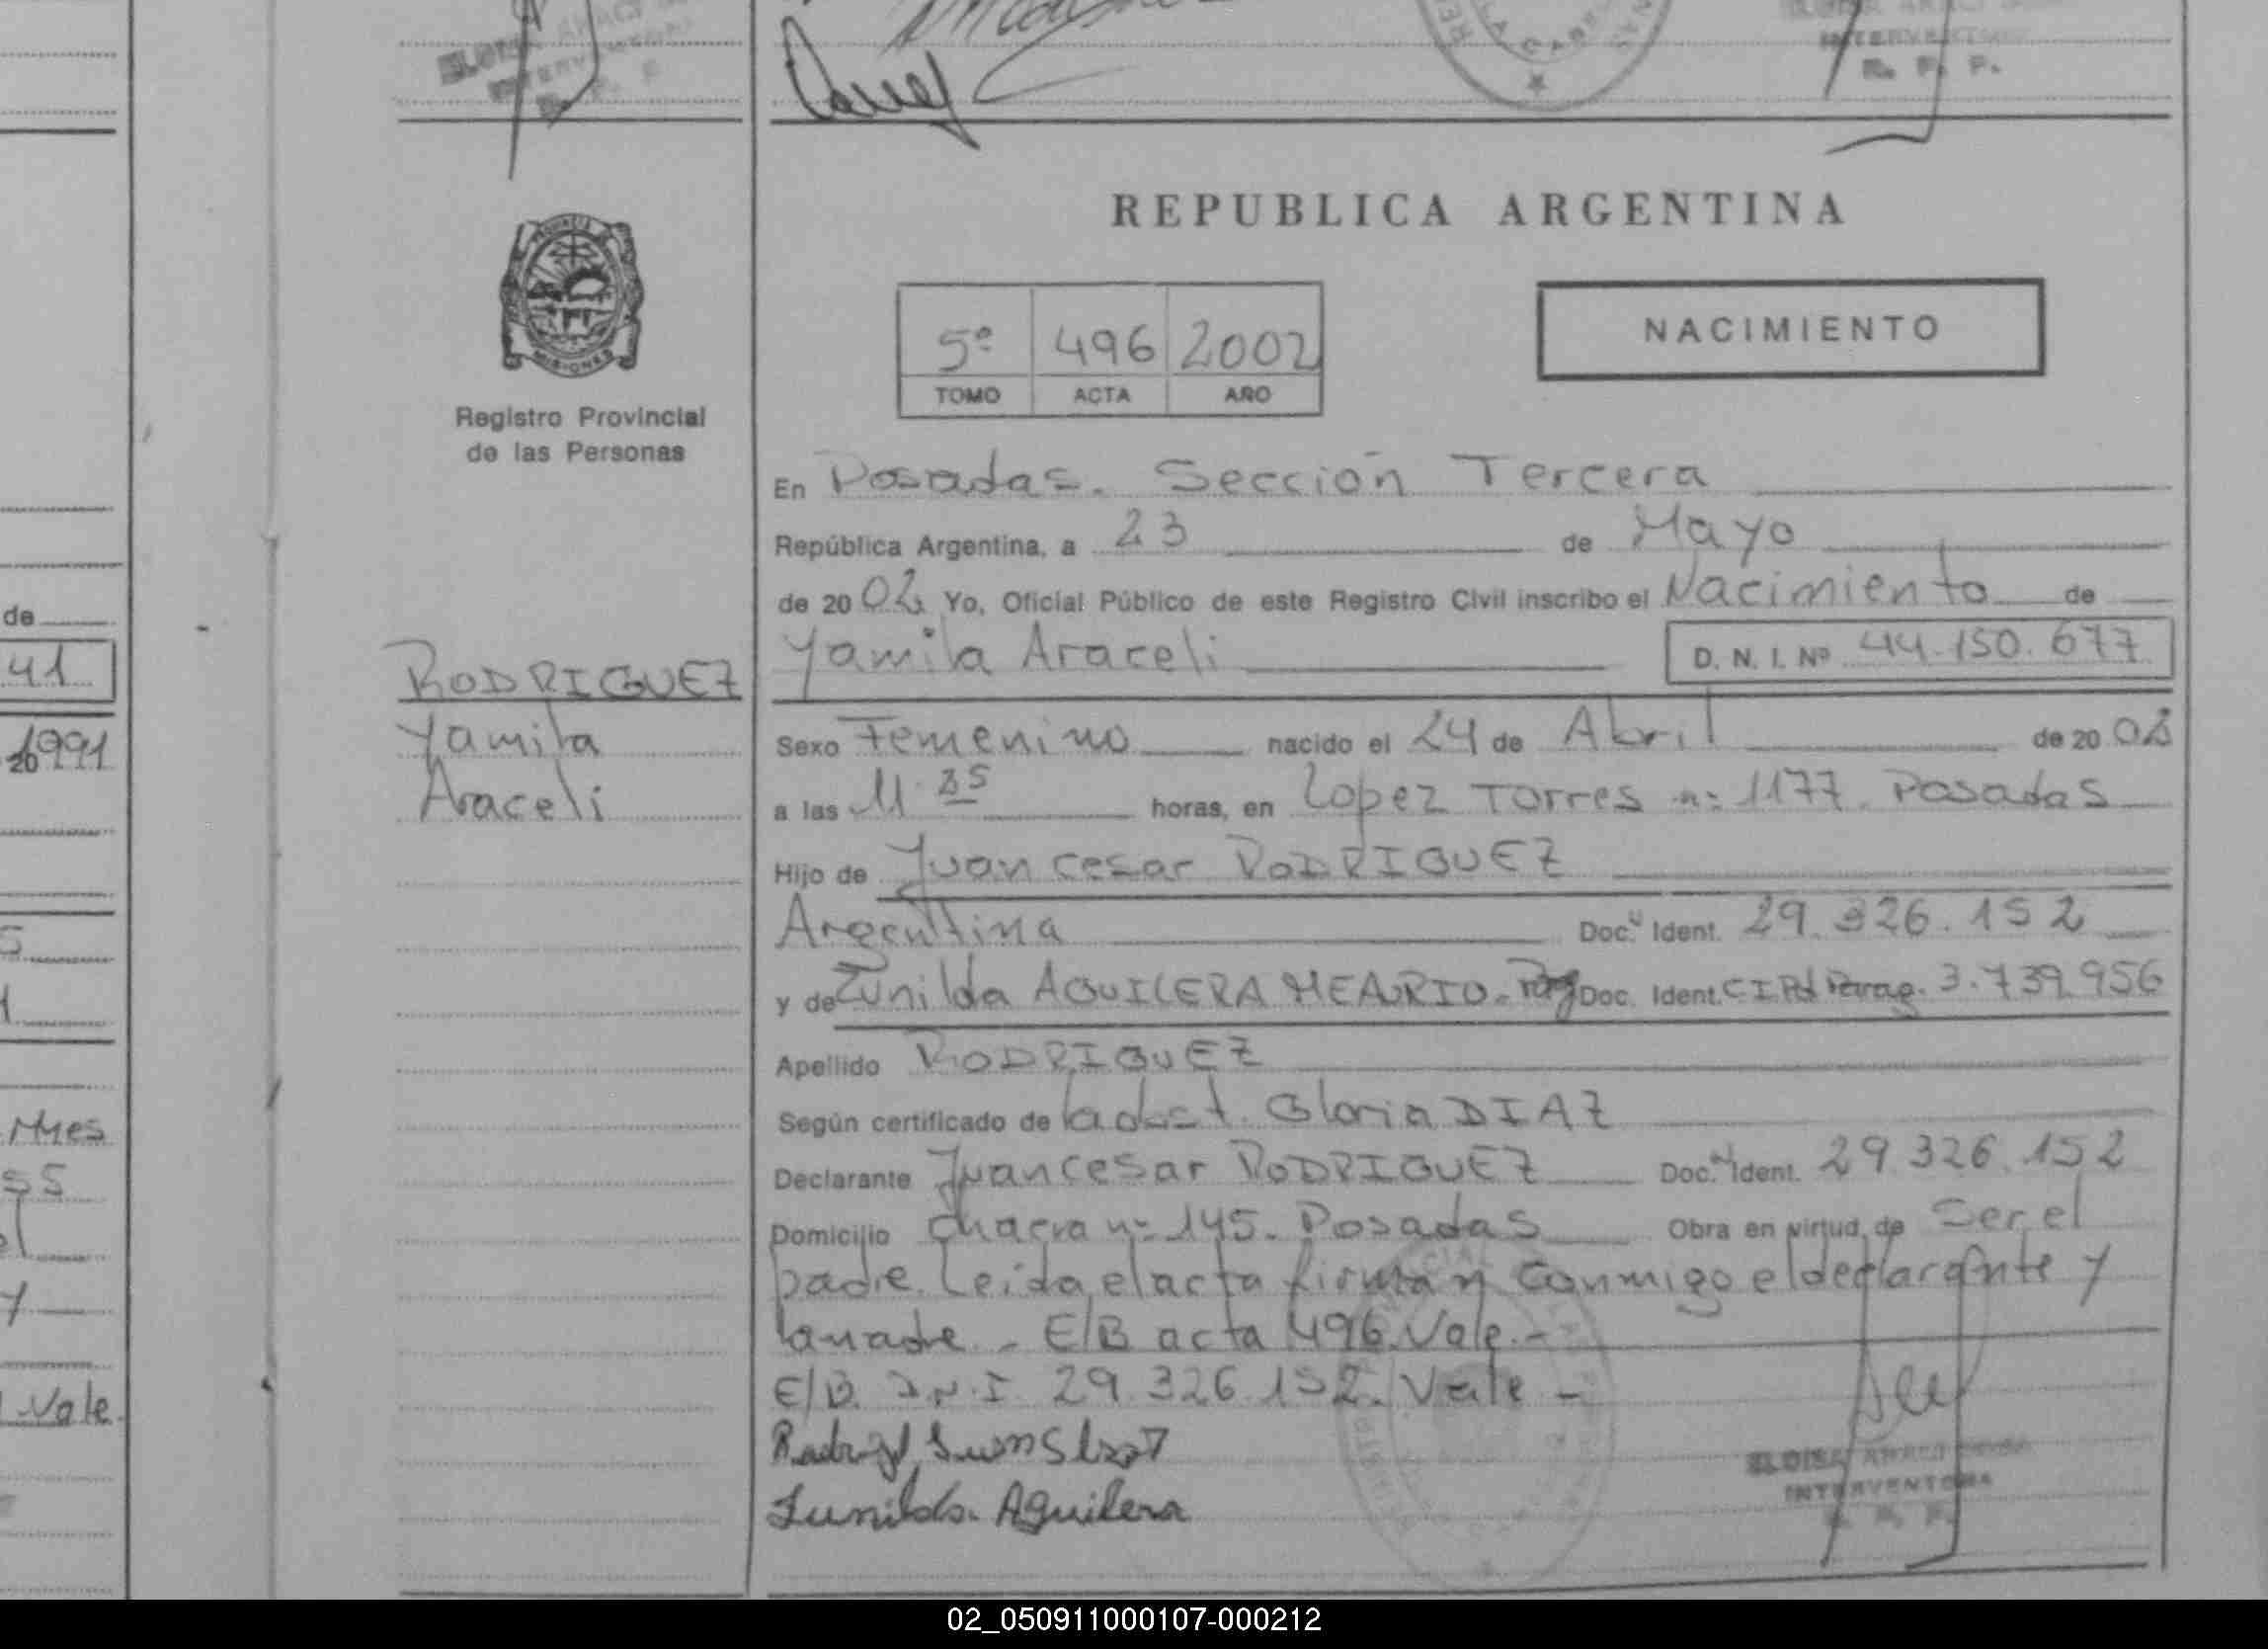 INTERVENTORA
R. P. P.
REPUBLICA ARGENTINA
MISIONES
Registro Provincial
de las Personas
5º 496 2002
TOMO ACTA AÑO
NACIMIENTO
En Posadas. Sección Tercera
República Argentina, a 23 de Mayo
de 2002 Yo, Oficial Público de este Registro Civil inscribo el Nacimiento de
de
41
RODRIGUEZ
Yamila
Araceli
Yamila Araceli D. N. I. Nº 44.150.677
20 1991
Sexo Femenino nacido el 24 de Abril de 2002
a las 11 35 horas, en Lopez Torres nº 1177. Posadas
Hijo de Juan Cesar RODRIGUEZ
Argentina Doc. Ident. 29.326.152
y de Zunilda AQUILERA Doc. Ident. C.I. Pol Parag. 3.739.956
Apellido RODRIGUEZ
Según certificado de la obst. Gloria DIAZ
Mnes
Declarante Juan Cesar RODRIGUEZ Doc. Ident. 29.326.152
55
Domicilio Chacra nº 145. Posadas Obra en virtud de Ser el
padre. Leida el acta firman conmigo el declarante y
y
la madre. - E/B acta 496. Vale. -
E/B. D.N.I 29.326.152. Vale -
Vale
Zunilda. Aguilera
ELOISA
INTERVENTORA
R. P. P.
02_050911000107-000212